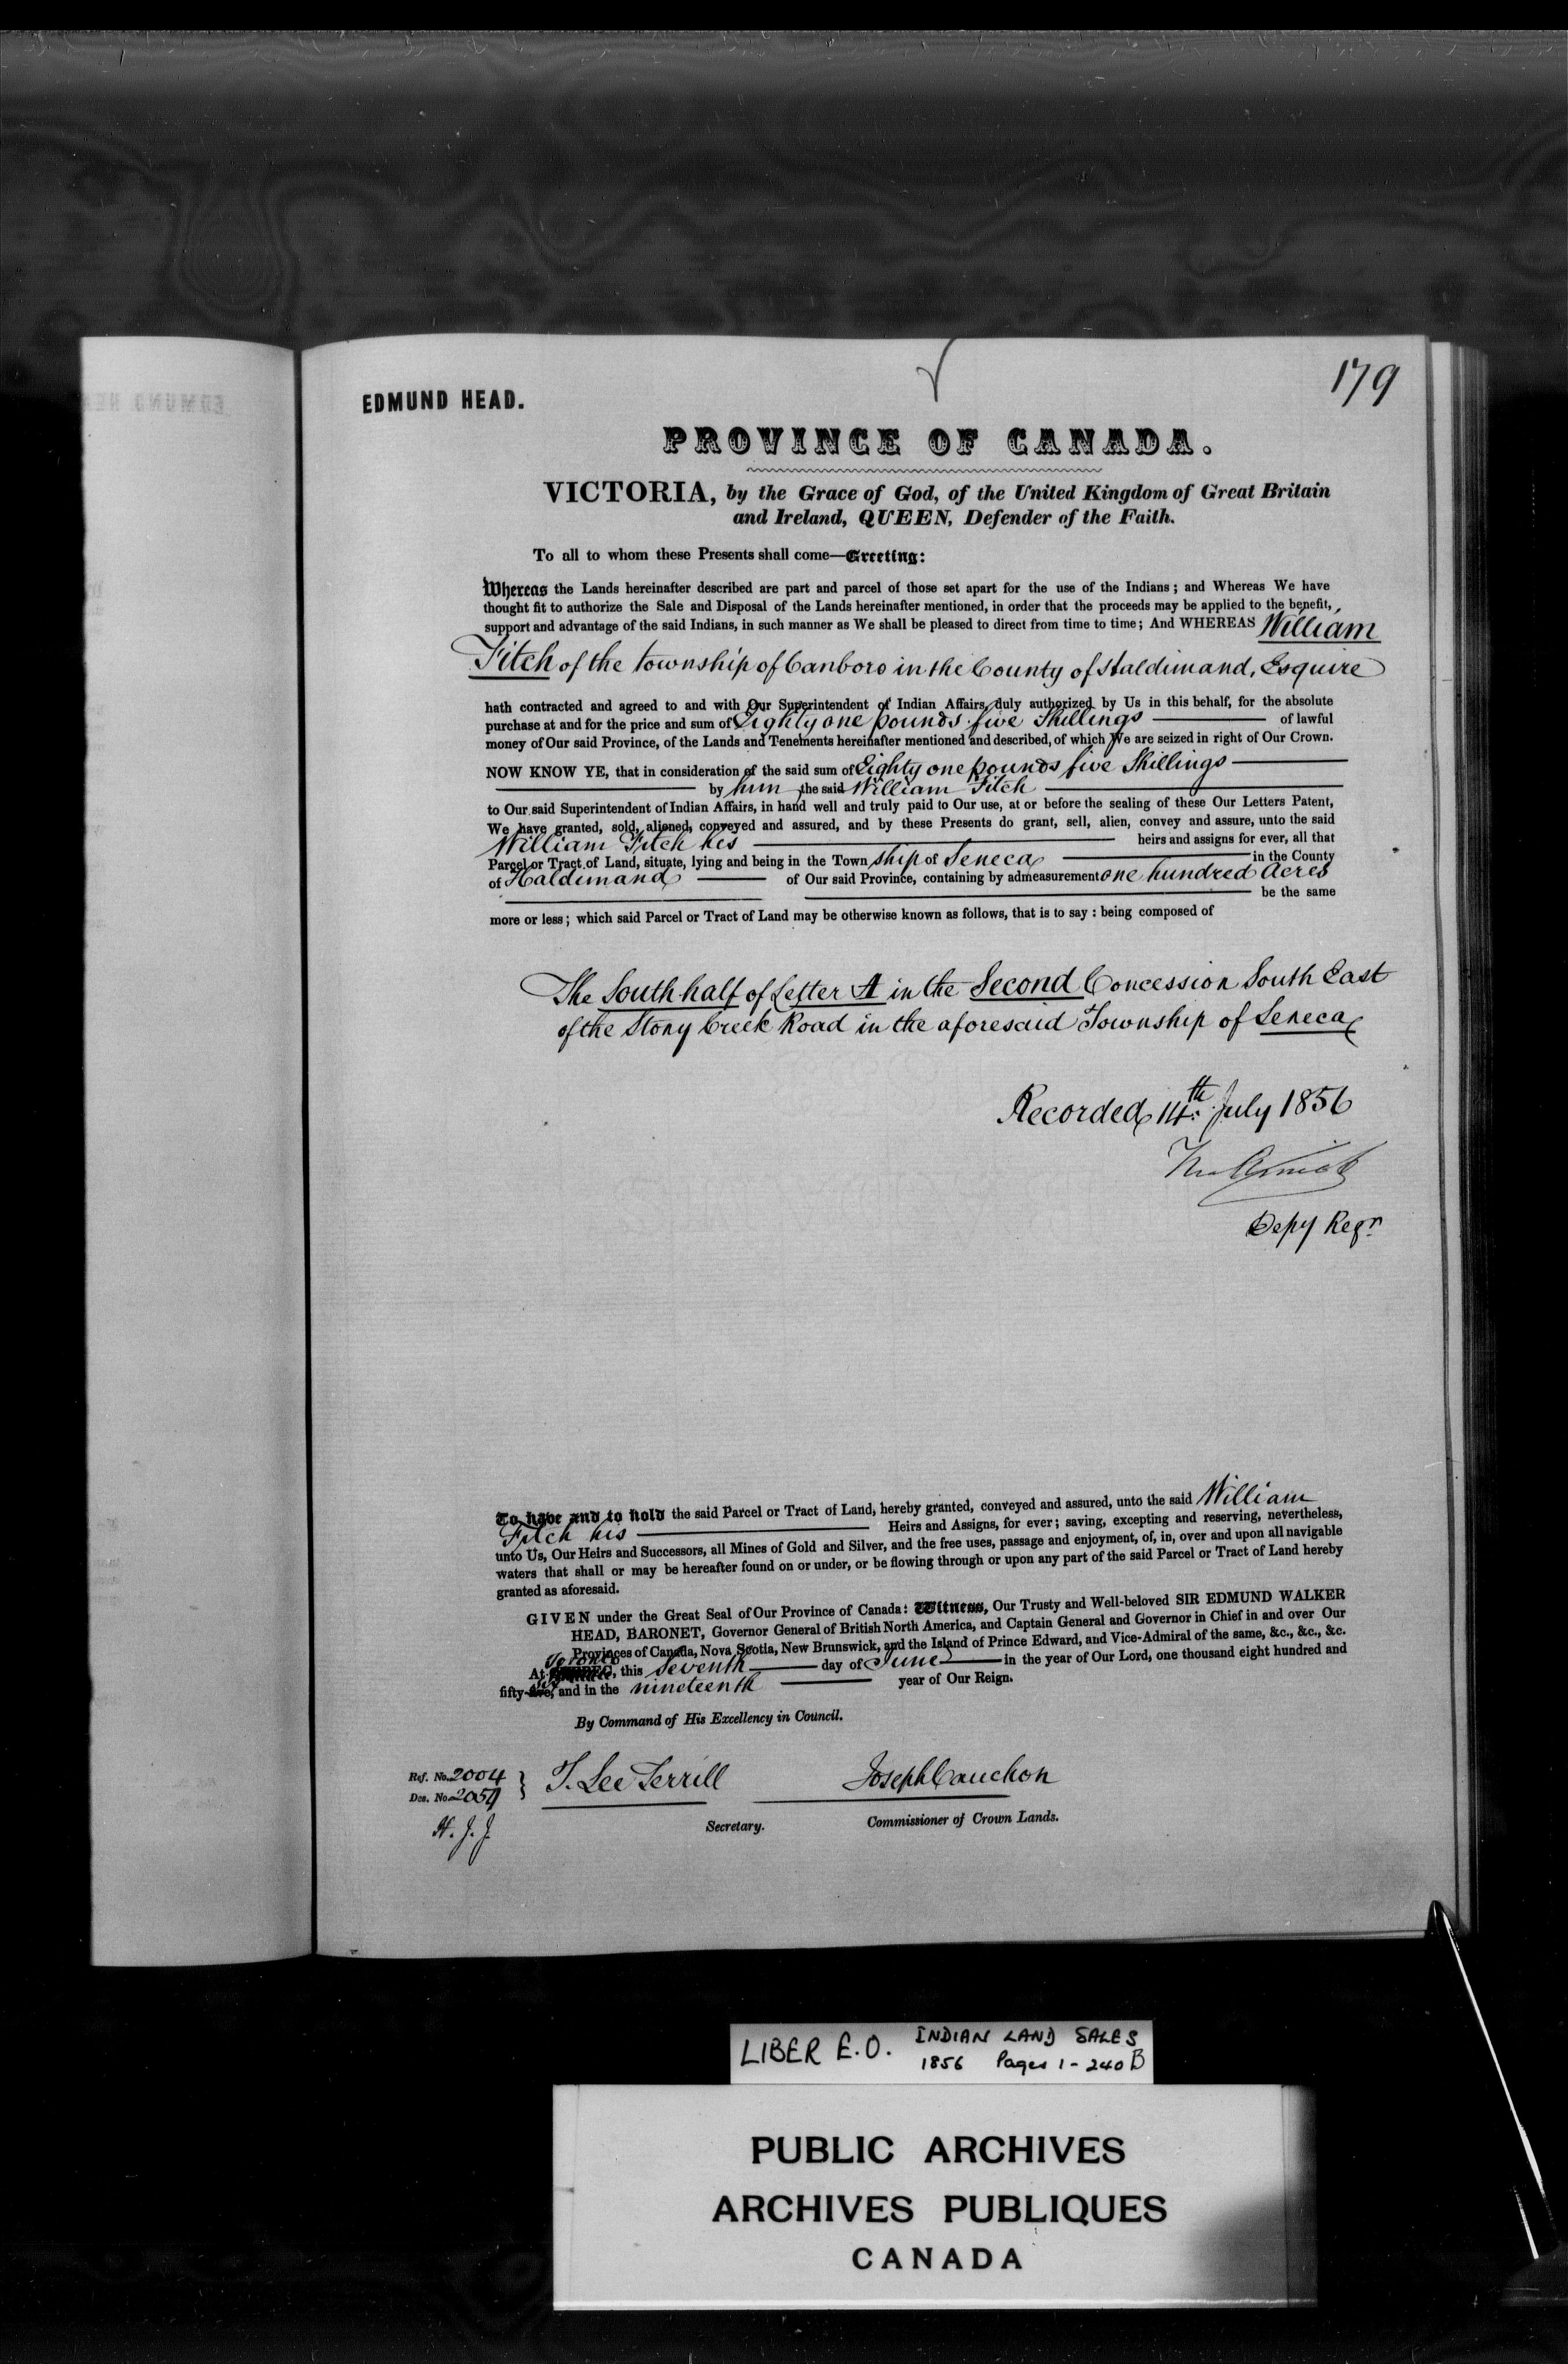 179
EDMUND HEAD.
PROVINCE OF CANADA.
VICTORIA, by the Grace of God, of the United Kingdom of Great Britain
and Ireland, QUEEN, Defender of the Faith.
To all to whom these Presents shall come—Greeting:
Whereas the Lands hereinafter described are part and parcel of those set apart for the use of the Indians; and Whereas We have
thought fit to authorize the Sale and Disposal of the Lands hereinafter mentioned, in order that the proceeds may be applied to the benefit,
support and advantage of the said Indians, in such manner as We shall be pleased to direct from time to time; And WHEREAS William
Fitch of the township of Canboro in the County of Haldimand, Esquire
hath contracted and agreed to and with Our Superintendent of Indian Affairs, duly authorized by Us in this behalf, for the absolute
purchase at and for the price and sum of Eighty one pounds five Shillings of lawful
money of Our said Province, of the Lands and Tenements hereinafter mentioned and described, of which We are seized in right of Our Crown.
NOW KNOW YE, that in consideration of the said sum of Eighty one pounds five Shillings
by him the said William Fitch
to Our said Superintendent of Indian Affairs, in hand well and truly paid to Our use, at or before the sealing of these Our Letters Patent,
We have granted, sold, aliened, conveyed and assured, and by these Presents do grant, sell, alien, convey and assure, unto the said
William Fitch his heirs and assigns for ever, all that
Parcel or Tract of Land, situate, lying and being in the Town ship of Seneca in the County
of Haldimand of Our said Province, containing by admeasurement one hundred Acres
be the same
more or less; which said Parcel or Tract of Land may be otherwise known as follows, that is to say: being composed of
The South half of Letter A in the Second Concession South East
of the Stony Creek Road in the aforesaid Township of Seneca
Recorded 14th July 1856
Depy Regr
To have and to hold the said Parcel or Tract of Land, hereby granted, conveyed and assured, unto the said William
Fitch his Heirs and Assigns, for ever; saving, excepting and reserving, nevertheless,
unto Us, Our Heirs and Successors, all Mines of Gold and Silver, and the free uses, passage and enjoyment, of, in, over and upon all navigable
waters that shall or may be hereafter found on or under, or be flowing through or upon any part of the said Parcel or Tract of Land hereby
granted as aforesaid.
GIVEN under the Great Seal of Our Province of Canada: Witness, Our Trusty and Well-beloved SIR EDMUND WALKER
HEAD, BARONET, Governor General of British North America, and Captain General and Governor in Chief in and over Our
Provinces of Canada, Nova Scotia, New Brunswick, and the Island of Prince Edward, and Vice-Admiral of the same, &c., &c., &c.
At Toronto, this Seventh day of June in the year of Our Lord, one thousand eight hundred and
fifty-six, and in the nineteenth year of Our Reign.
By Command of His Excellency in Council.
Ref. No. 2004
Des. No. 2059
T. Lee Terrill
Joseph Cauchon
Secretary.
Commissioner of Crown Lands.
H. J. J.
LIBER E.O. INDIAN LAND SALES
1856 Pages 1-240B
PUBLIC ARCHIVES
ARCHIVES PUBLIQUES
CANADA